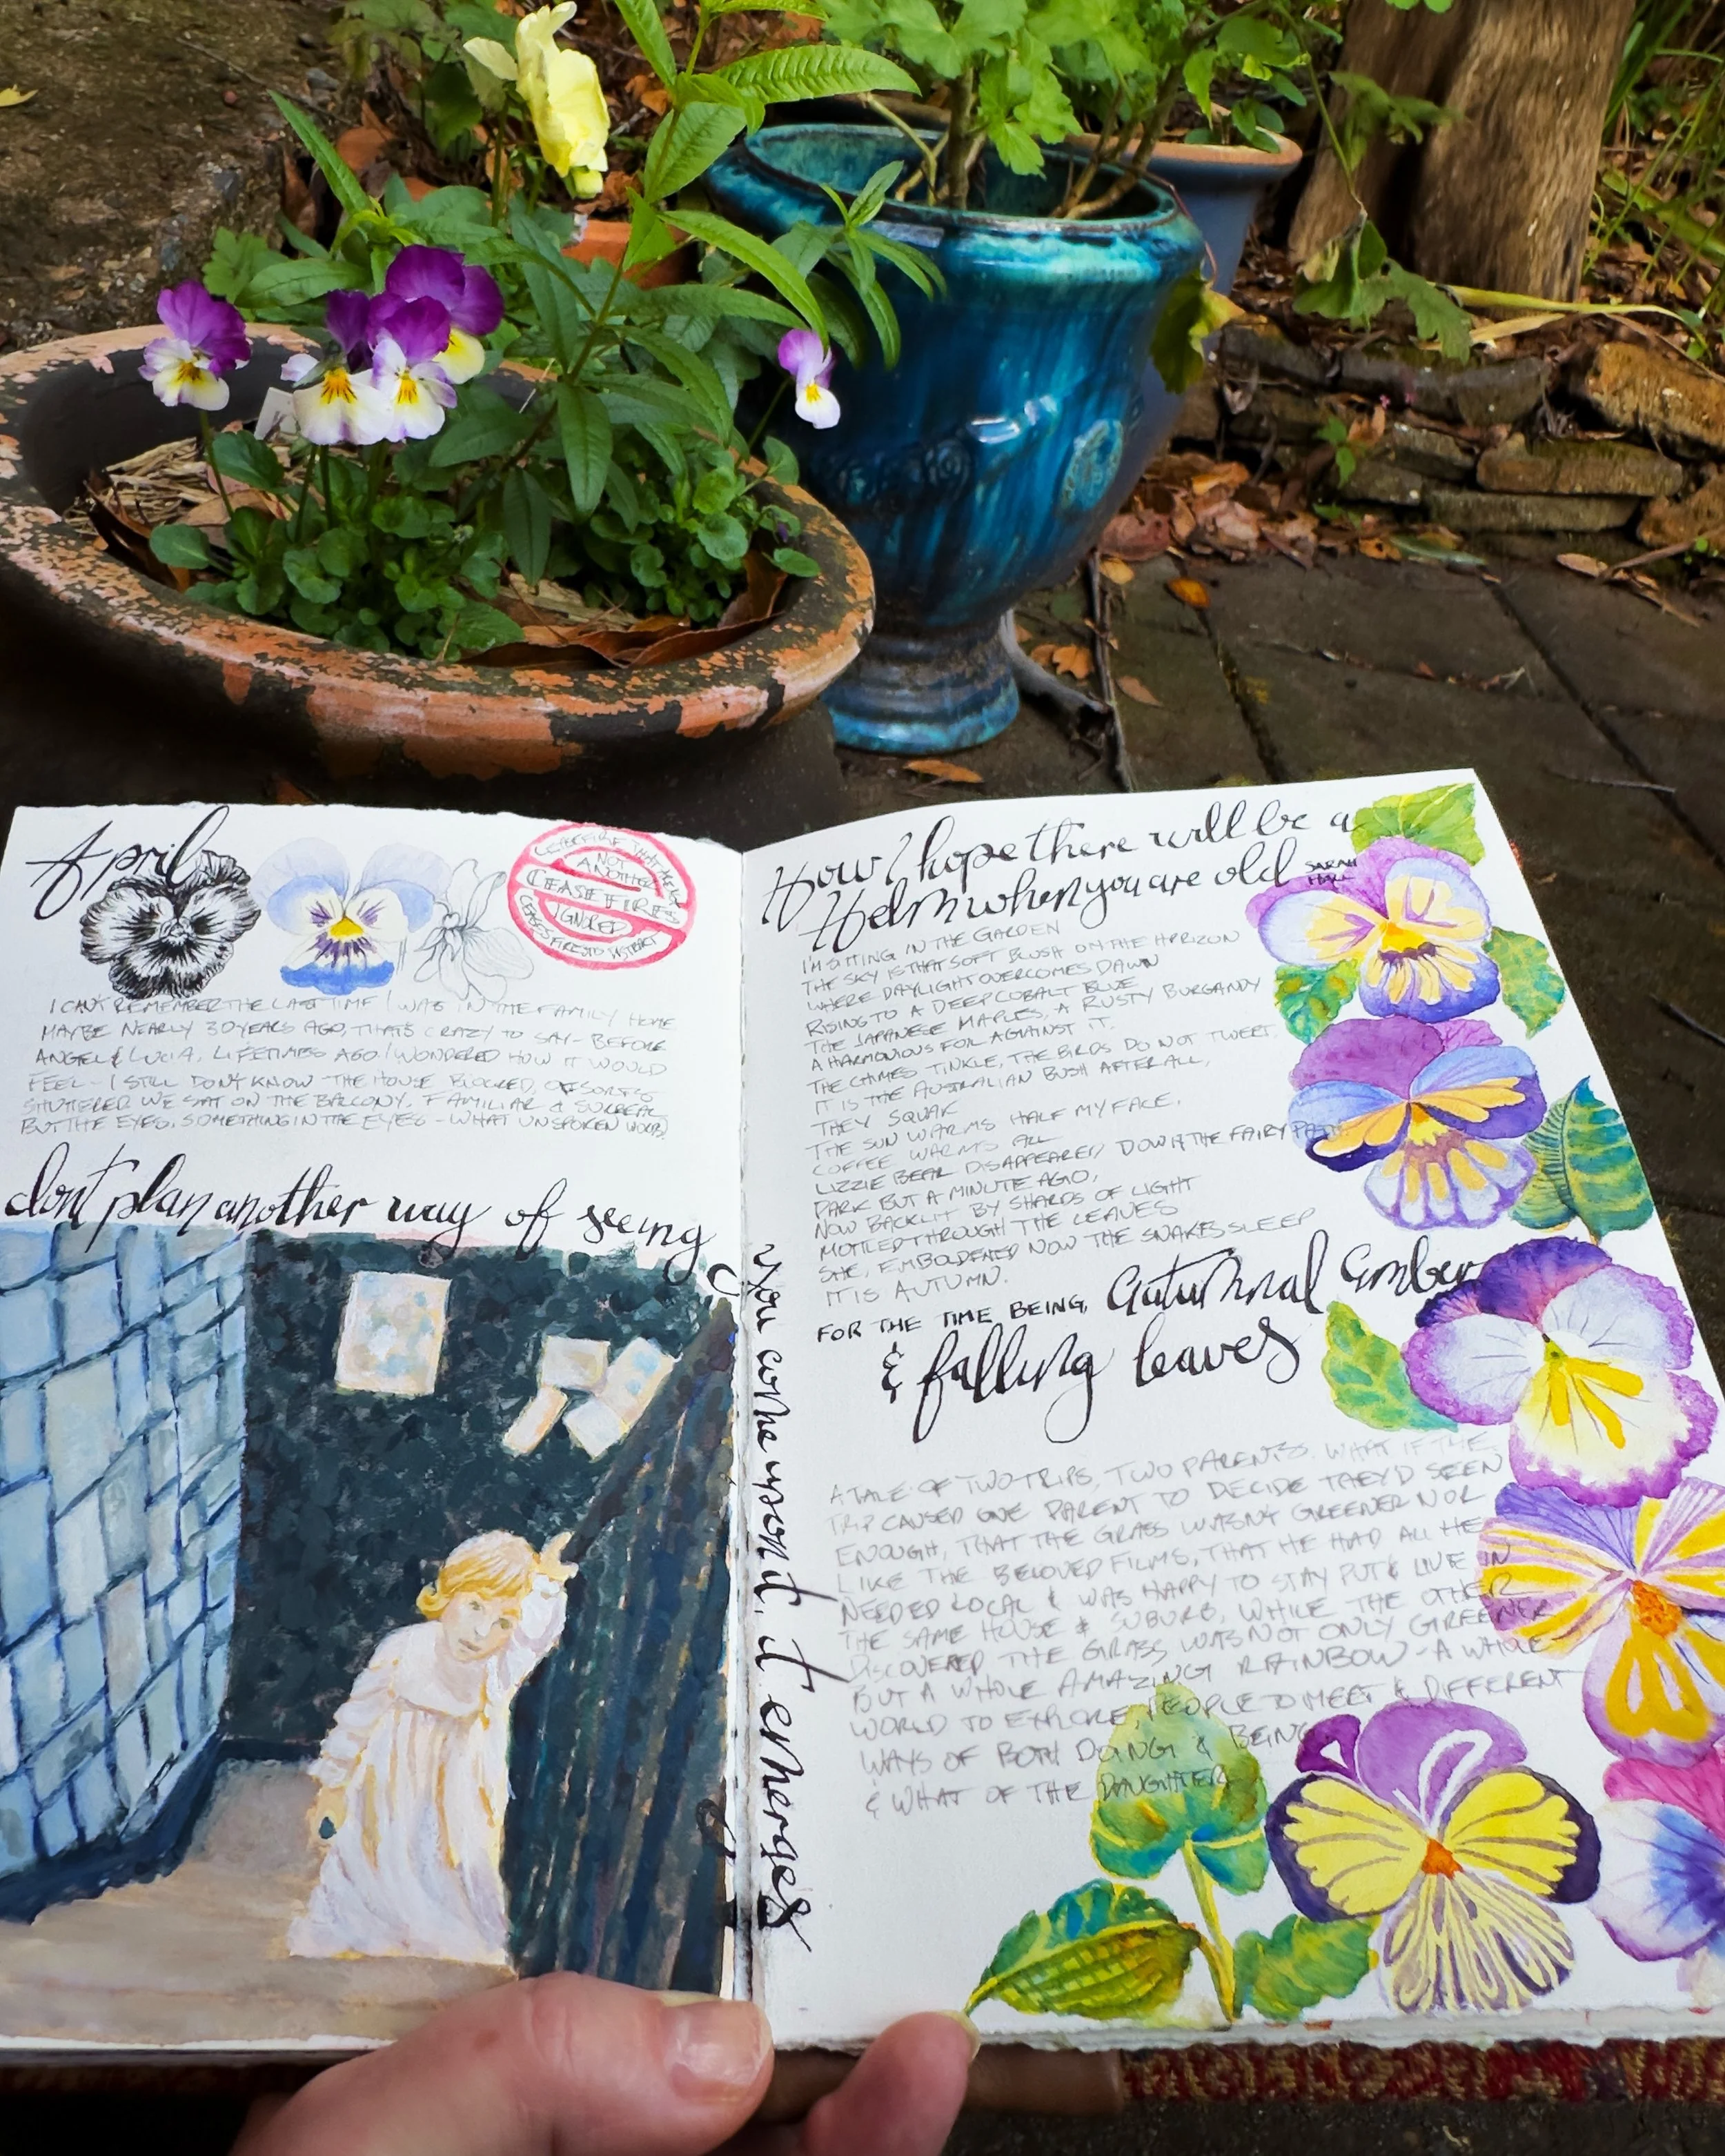 April
CEASEFIRE THAT
NOT
ANOTHER
CEASE FIRES
IGNORED
CEASES FIRE TO DISTRACT
I CAN'T REMEMBER THE LAST TIME I WAS IN THE FAMILY HOME
MAYBE NEARLY 30 YEARS AGO, THAT'S CRAZY TO SAY - BEFORE
ANGEL & LUCIA, LIFETIMES AGO. I WONDERED HOW IT WOULD
FEEL - I STILL DON'T KNOW - THE HOUSE BLOCKED, OF SORTS
SHUTTERED WE SAT ON THE BALCONY, FAMILIAR & SURREAL
BUT THE EYES, SOMETHING IN THE EYES - WHAT UNSPOKEN WORDS
dont plan another way of seeing
you come upon it. it emerges
How I hope there will be a
Helm when you are old SARAH HALL
I'M SITTING IN THE GARDEN
THE SKY IS THAT SOFT BLUSH ON THE HORIZON
WHERE DAYLIGHT OVERCOMES DAWN
RISING TO A DEEP COBALT BLUE
THE JAPANESE MAPLES, A RUSTY BURGANDY
A HARMONIOUS FOIL AGAINST IT.
THE CHIMES TINKLE, THE BIRDS DO NOT TWEET.
IT IS THE AUSTRALIAN BUSH AFTER ALL,
THEY SQUAK
THE SUN WARMS HALF MY FACE,
COFFEE WARMS ALL
LIZZIE BEAR DISAPPEARED DOWN THE FAIRY PATH
DARK BUT A MINUTE AGO,
NOW BACKLIT BY SHARDS OF LIGHT
MOTTLED THROUGH THE LEAVES
SHE, EMBOLDENED NOW THE SNAKES SLEEP
IT IS AUTUMN.
FOR THE TIME BEING, autumnal ember
& falling leaves
A TALE OF TWO TRIPS, TWO PARENTS. WHAT IF THE
TRIP CAUSED ONE PARENT TO DECIDE THEY'D SEEN
ENOUGH, THAT THE GRASS WASN'T GREENER NOR
LIKE THE BELOVED FILMS, THAT HE HAD ALL HE
NEEDED LOCAL & WAS HAPPY TO STAY PUT & LIVE IN
THE SAME HOUSE & SUBURB, WHILE THE OTHER
DISCOVERED THE GRASS WAS NOT ONLY GREENER
BUT A WHOLE AMAZING RAINBOW - A WHOLE
WORLD TO EXPLORE, PEOPLE TO MEET & DIFFERENT
WAYS OF BOTH DOING & BEING
& WHAT OF THE DAUGHTER